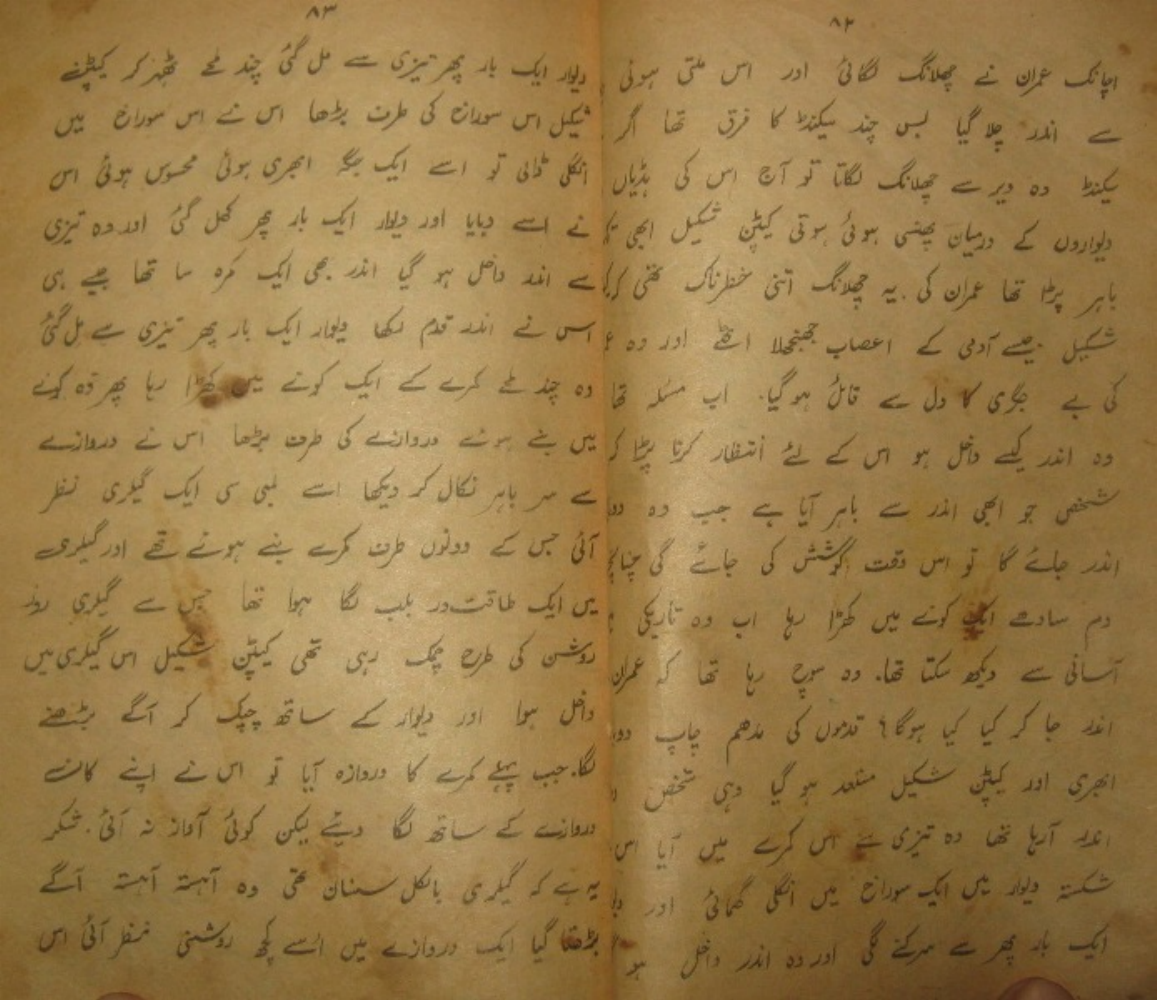 ۸۲
اچانک عمران نے چھلانگ لگائی اور اس ملتی ہوئی
سے اندر چلا گیا بس چند سیکنڈ کا فرق تھا اگر
سیکنڈ وہ دیر سے چھلانگ لگاتا تو آج اس کی ہڈیاں
دیواروں کے درمیان پھنسی ہوئی ہوتی کیپٹن شکیل ابھی
باہر پڑا تھا عمران کی یہ چھلانگ اتنی خطرناک تھی
شکیل جیسے آدمی کے اعصاب جھنجھلا اٹھے اور وہ
کی بے جگری کا دل سے قائل ہو گیا۔ اب مسئلہ تھا
وہ اندر کیسے داخل ہو اس کے لئے انتظار کرنا پڑا
شخص جو ابھی اندر سے باہر آیا ہے جب وہ
اندر جائے گا تو اس وقت کوشش کی جائے گی چنانچہ
دم سادھے ایک کونے میں کھڑا رہا اب وہ تاریکی
آسانی سے دیکھ سکتا تھا۔ وہ سوچ رہا تھا کہ عمران
اندر جا کر کیا کیا ہوگا؟ قدموں کی مدھم چاپ
ابھری اور کیپٹن شکیل مستعد ہو گیا وہی شخص
اندر آرہا تھا وہ تیزی سے اس کمرے میں آیا اس
شکستہ دیوار میں ایک سوراخ میں انگلی گھمائی اور
ایک بار پھر سے سرکنے لگی اور وہ اندر داخل ہو
۸۳
دیوار ایک بار پھر تیزی سے مل گئی چند لمحے ٹھہر کر کیپٹن
شکیل اس سوراخ کی طرف بڑھا اس نے اس سوراخ میں
انگلی ڈالی تو اسے ایک جگہ ابھری ہوئی محسوس ہوئی اس
نے اسے دبایا اور دیوار ایک بار پھر کھل گئی اور وہ تیزی
سے اندر داخل ہو گیا اندر بھی ایک کمرہ سا تھا جیسے ہی
اس نے اندر قدم رکھا دیوار ایک بار پھر تیزی سے مل گئی
وہ چند لمحے کمرے کے ایک کونے میں کھڑا رہا پھر وہ کونے
میں بنے ہوئے دروازے کی طرف بڑھا اس نے دروازے
سے سر باہر نکال کر دیکھا اسے لمبی سی ایک گیلری نظر
آئی جس کے دونوں طرف کمرے بنے ہوئے تھے اور گیلری
میں ایک طاقت ور بلب لگا ہوا تھا جس سے گیلری روز
روشن کی طرح چمک رہی تھی کیپٹن شکیل اس گیلری میں
داخل ہوا اور دیوار کے ساتھ چپک کر آگے بڑھنے
لگا۔ جب پہلے کمرے کا دروازہ آیا تو اس نے اپنے کان
دروازے کے ساتھ لگا دیئے لیکن کوئی آواز نہ آئی۔ شکر
یہ ہے کہ گیلری بالکل سنسان تھی وہ آہستہ آہستہ آگے
بڑھتا گیا ایک دروازے میں اسے کچھ روشنی نظر آئی اس